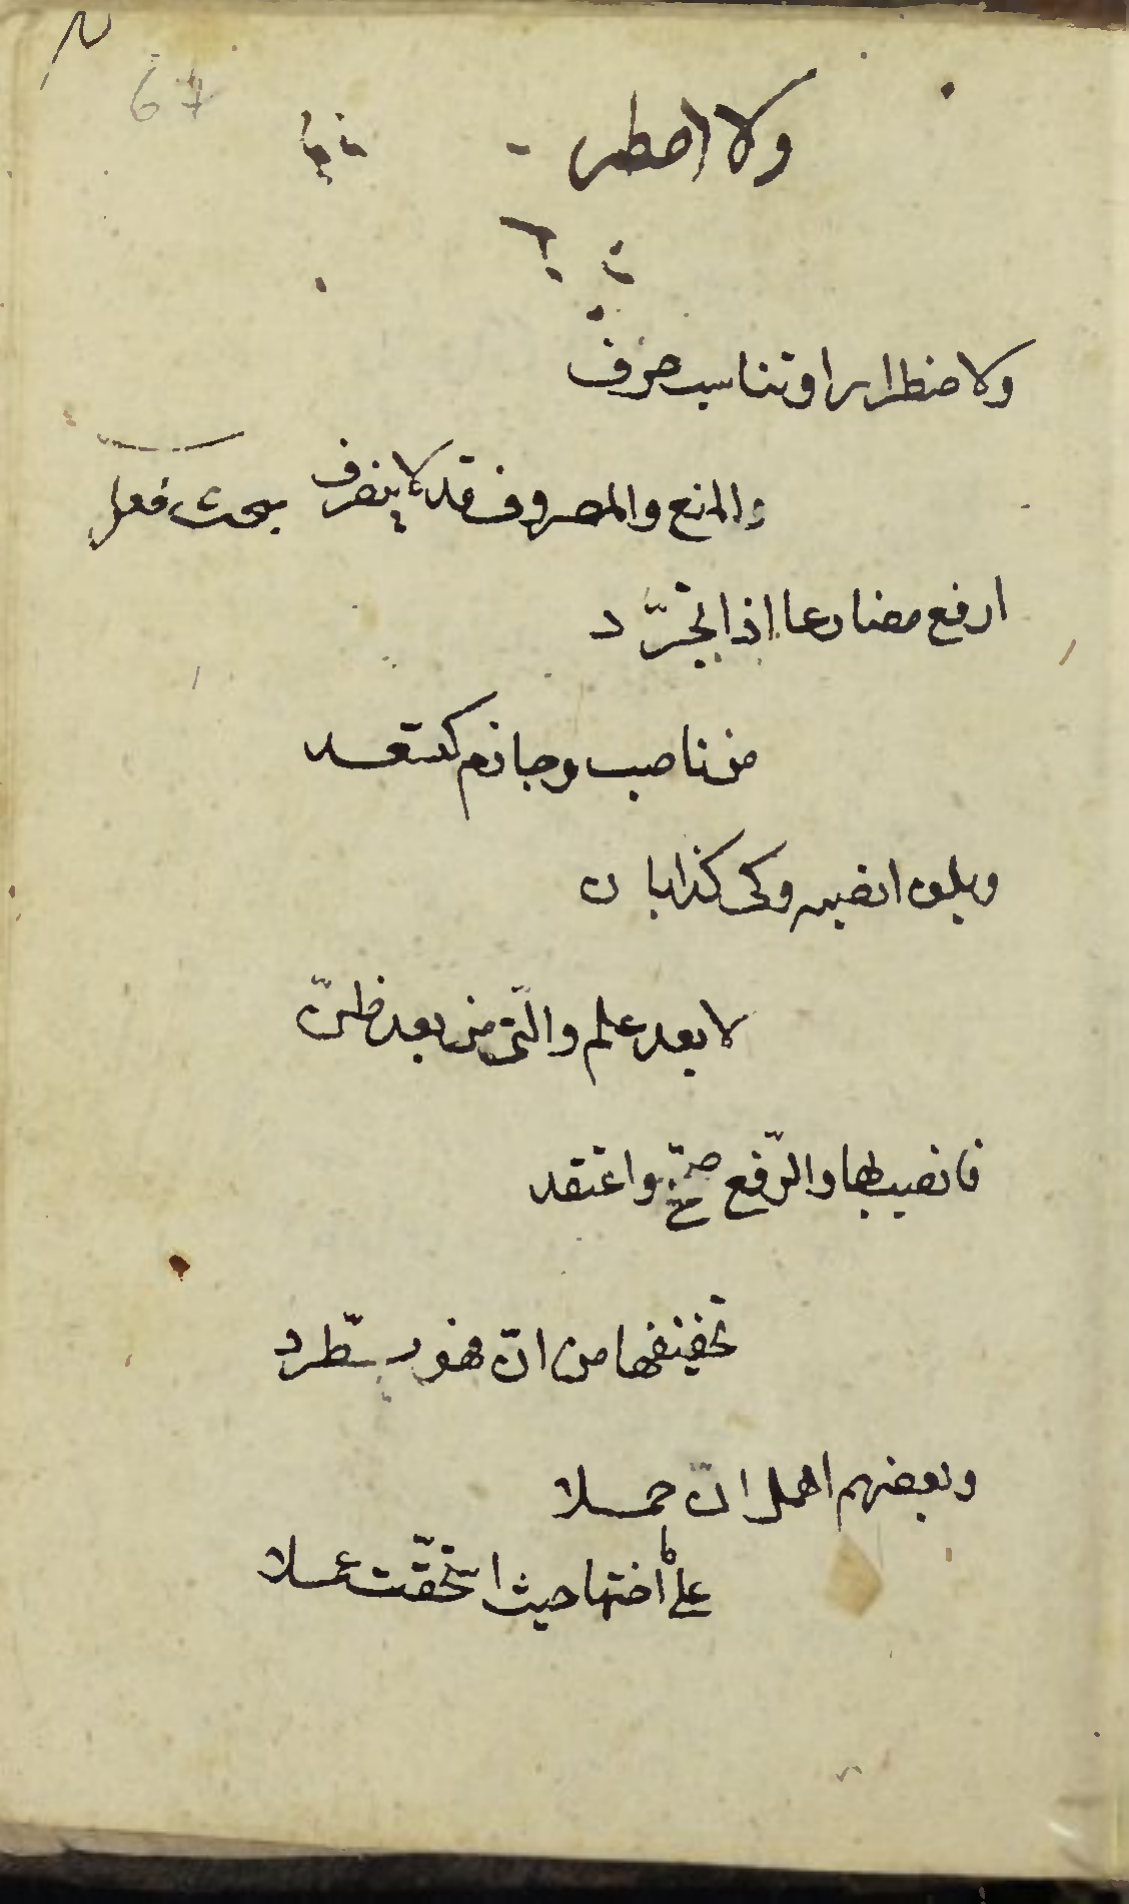 67
ولا اصطر
ولاضطرار او تناسب صرف
والمنع والمصروف قد لا ينصرف بحث فعل
ارفع مضارعا اذا تجرّد
من ناصب وجازم كتسعد
وبلن انصبه وكى كذا بان
لا بعد علم والتّى من بعد ظنّ
فانصب بها والرّفع صحّح واعتقد
تخفيفها من انّ فهو مطّرد
وبعضهم اهمل ان حملا
على ما اختها حيث استحقّت عملا